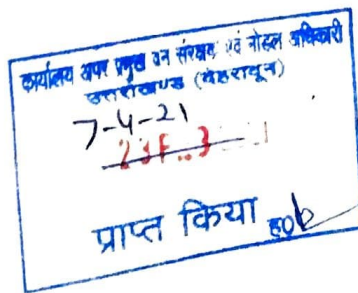 कार्यालय अपर प्रमुख वन संरक्षक एवं नोडल अधिकारी
उत्तराखण्ड (देहरादून)
7-4-21
प्राप्त किया